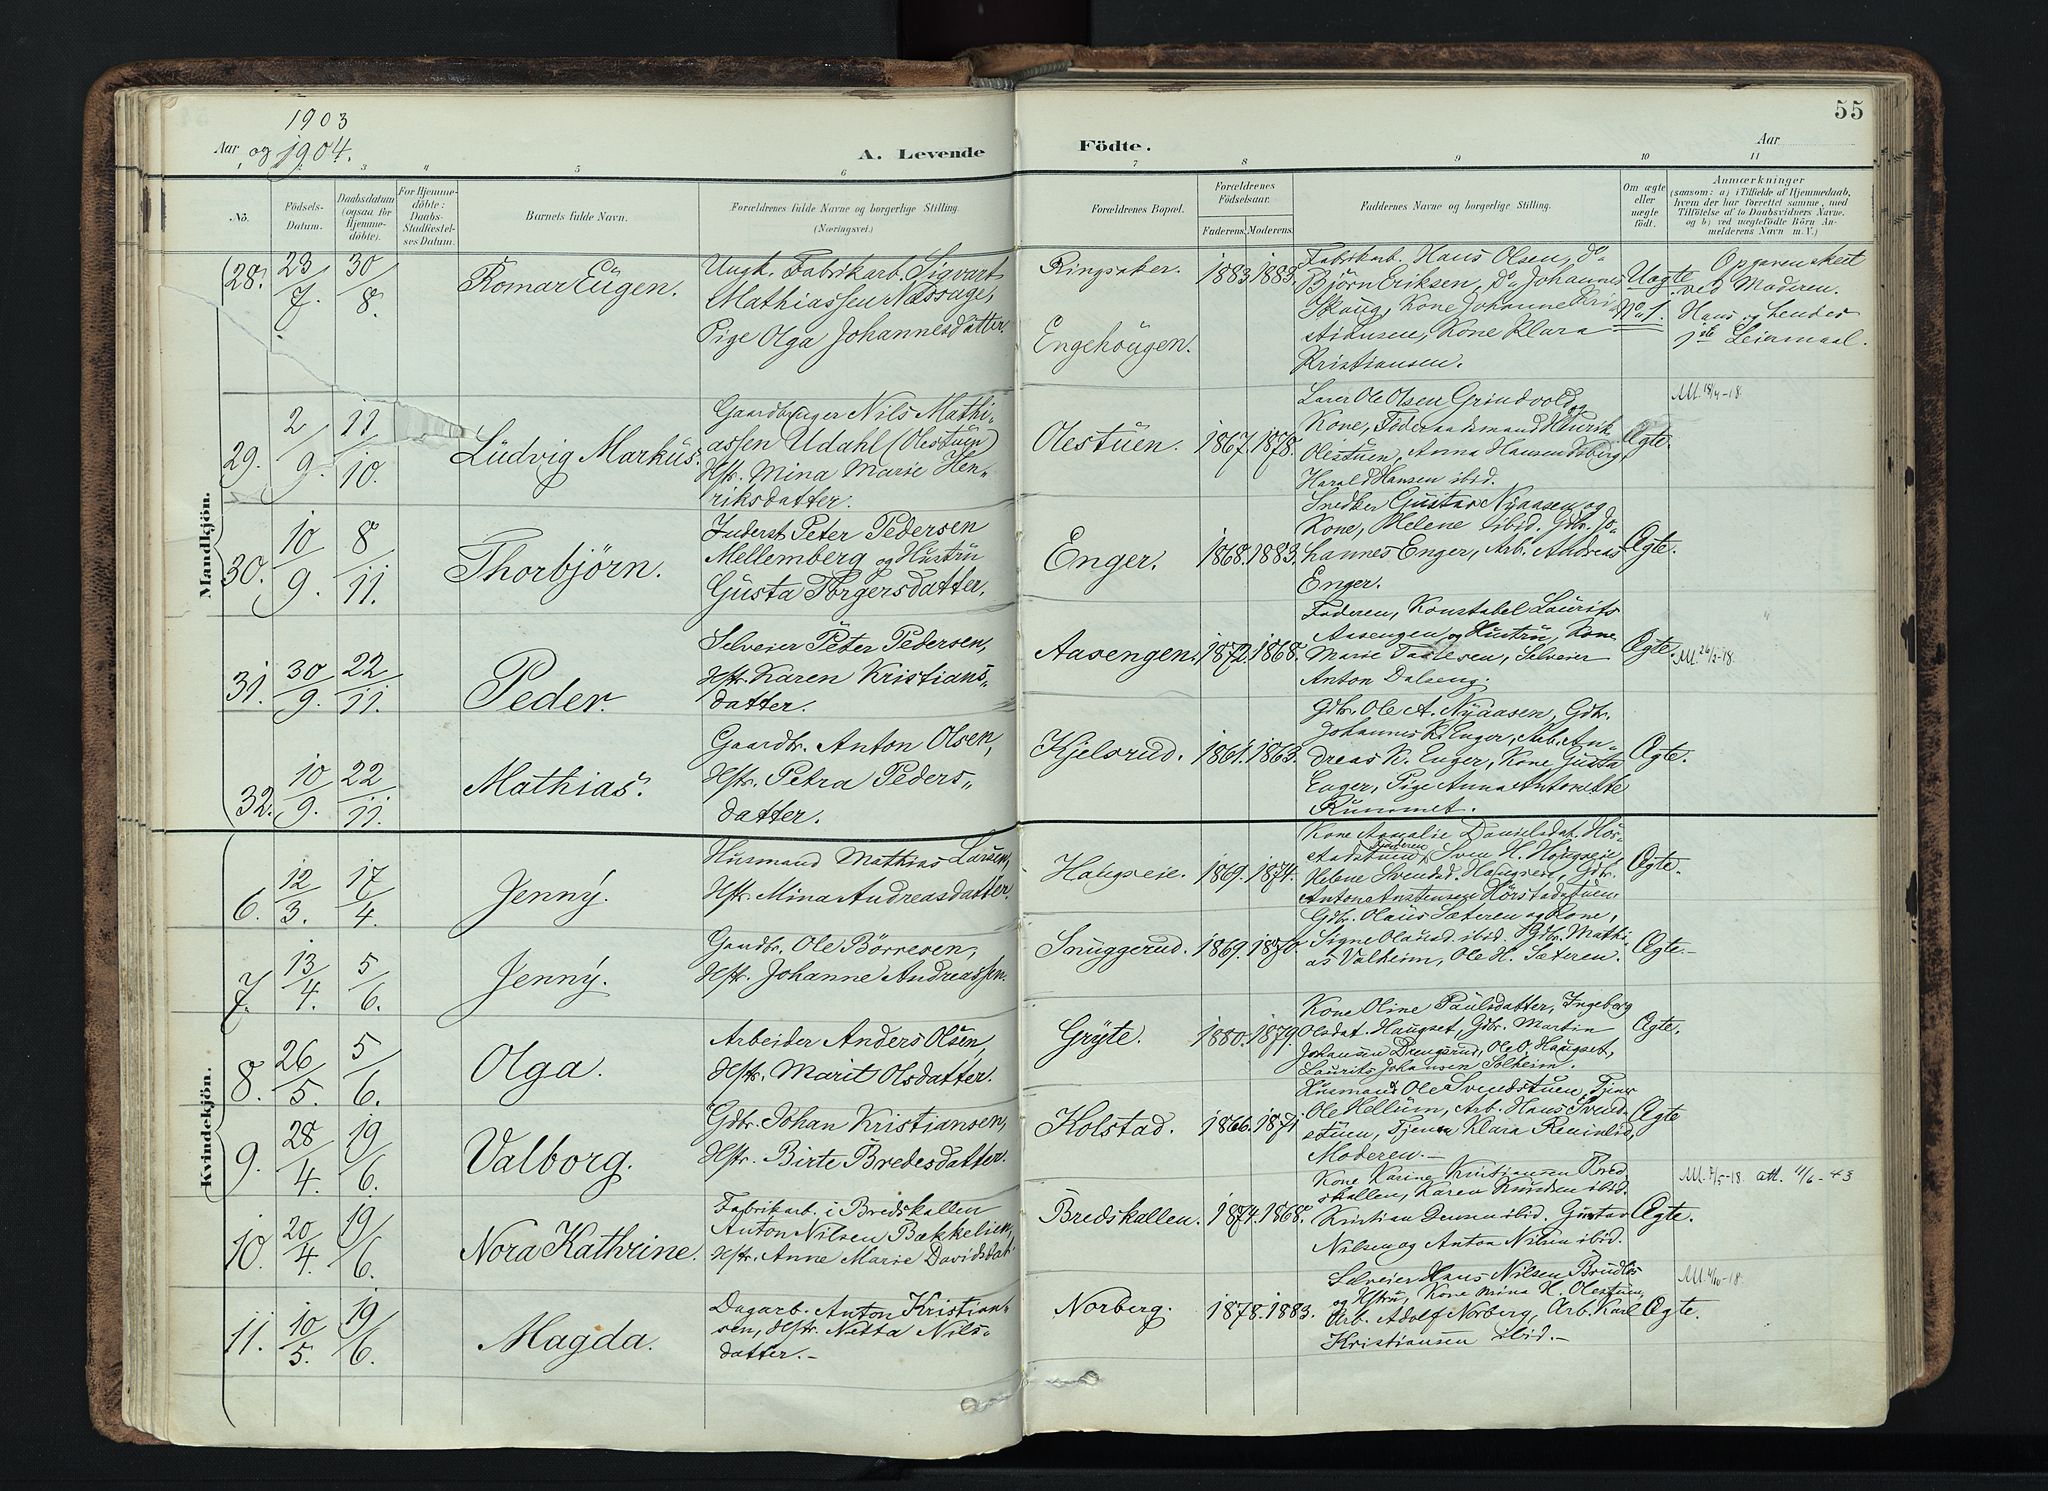 1903
Aar og 1904.
A. Levende
Födte.
Aar
55
1 2 3 4 5 6 7 8 9 10 11
Nö.
Födsels-Datum.
Daabsdatum (ogsaa for Hjemmedöbte).
For Hjemmedöbte: Daabs-Stadfæstelses Datum.
Barnets fulde Navn.
Forældrenes fulde Navne og borgerlige Stilling.
(Næringsvei.)
Forældrenes Bopæl.
Forældrenes Födselsaar.
Faderens. Moderens.
Faddernes Navne og borgerlige Stilling.
Om ægte eller uægte födt.
Anmærkninger
(saasom: a) i Tilfælde af Hjemmedaab, hvem der har forrettet samme, med Tilföielse af to Daabsvidners Navne, og b) ved uægtefödte Börn Anmelderens Navn m. V.)
Mandkjön.
28. 23/7. 30/8. Romar Eugen.
Ungk. Fabrikarb. Sigvart
Mathiassen Næssage,
Pige Olga Johannesdatter.
Ringsaker.
Engehöugen.
1883. 1883.
Fabrikarb. Hans Olsen, do
Björn Eriksen, do Johannes
Skaug, Kone Johanne Kri-
stiansen, Kone Klara
Kristiansen.
Uægte
No 1.
Opgaven skeet
ved Moderen.
Hans og hendes
1ste Leiermaal.
29. 2/9. 11/10. Ludvig Markus.
Gaardbruger Nils Mathi-
assen Udahl (Olestuen)
Hstr. Mina Marie Hen-
riksdatter.
Olestuen. 1867. 1878.
Lærer Ole Olsen Grindvold og
Kone, Föderaadsmand Henrik
Olestuen, Anna Hansen
Harald Hansen ibid.
Ægte.
30. 10/9. 8/11. Thorbjörn.
Inderst Peter Pedersen
Mellemberg og Hustru
Gusta Torgersdatter.
Enger. 1868. 1883.
Snedker Gustav Nyaasen og
Kone, Helene ibid. Gbr. Jo-
hannes Enger, Arb. Andreas
Enger.
Ægte.
31. 30/9. 22/11. Peder.
Selveier Peter Pedersen,
Hstr. Karen Kristians-
datter.
Aasengen. 1872. 1868.
Faderen, Konstabel Laurits
Aasengen og Hustru, Kone
Marie Paulsen, Selveier
Anton Dalseng.
Ægte.
32. 10/9. 22/11. Mathias.
Gaardbr. Anton Olsen,
Hstr. Petra Peders-
datter.
Kjelsrud. 1861. 1863.
Gdbr. Ole A. Nyaasen, Gdbr.
Johannes K. Enger, Arb. An-
dreas K. Enger, Kone Gusta
Enger, Pige Anna Antonette
Rummet.
Ægte.
Kvindekjön.
6. 12/3. 17/4. Jenny.
Husmand Mathias Larsen,
Hstr. Mina Andreasdatter.
Haugseie. 1869. 1874.
Kone Amalie Danielsdat. Hör-
stadstuen, Faderen, Sven H. Haugseie,
Helene Svendsd. Haugseie, Gdbr.
Anton Anstensen Hörstadstuen.
Ægte.
7. 13/4. 5/6. Jenny.
Gaardbr. Ole Börresen,
Hstr. Johanne Andreassen.
Snuggerud. 1869. 1870.
Gdbr. Olaus Sæteren og Kone,
Signe Olausd. ibid. Gdbr. Mathi-
as Valheim, Ole H. Sæteren.
Ægte.
8. 26/5. 5/6. Olga.
Arbeider Anders Olsen,
Hstr. Marit Olsdatter.
Gryte. 1880. 1879.
Kone Oline Paulsdatter, Ingeborg
Olsdat. Haugset, Gdbr. Martin
Johansen Drengsrud, Ole O. Haugset,
Laurits Johansen Solheim.
Ægte.
9. 28/4. 19/6. Valborg.
Gdbr. Johan Kristiansen,
Hstr. Birte Bredesdatter.
Kolstad. 1866. 1871.
Husmand Ole Svendstuen, Tjener
Ole Hellum, Arb. Hans Svend-
stuen, Tjener Klara
Moderen.
Ægte
10. 20/4. 19/6. Nora Kathrine.
Fabrikarb. i Bredskallen
Anton Nilsen Bakkelien,
Hstr. Anne Marie Davidsdat.
Bredskallen. 1874. 1868.
Kone Karine Kristiansen Bred-
skallen, Karen Knudsen ibid.
Kristian Jensen ibid. Gustav
Nilsen og Anton Nilsen ibid.
Ægte.
11. 10/5. 19/6. Magda.
Dagarb. Anton Kristian-
sen, Hstr. Netta Nils-
datter.
Norberg. 1878. 1883.
Selveier Hans Nilsen
og Hstru, Kone Mina H. Olestuen,
Arb. Adolf Norberg, Arb. Karl
Kristiansen ibid.
Ægte.